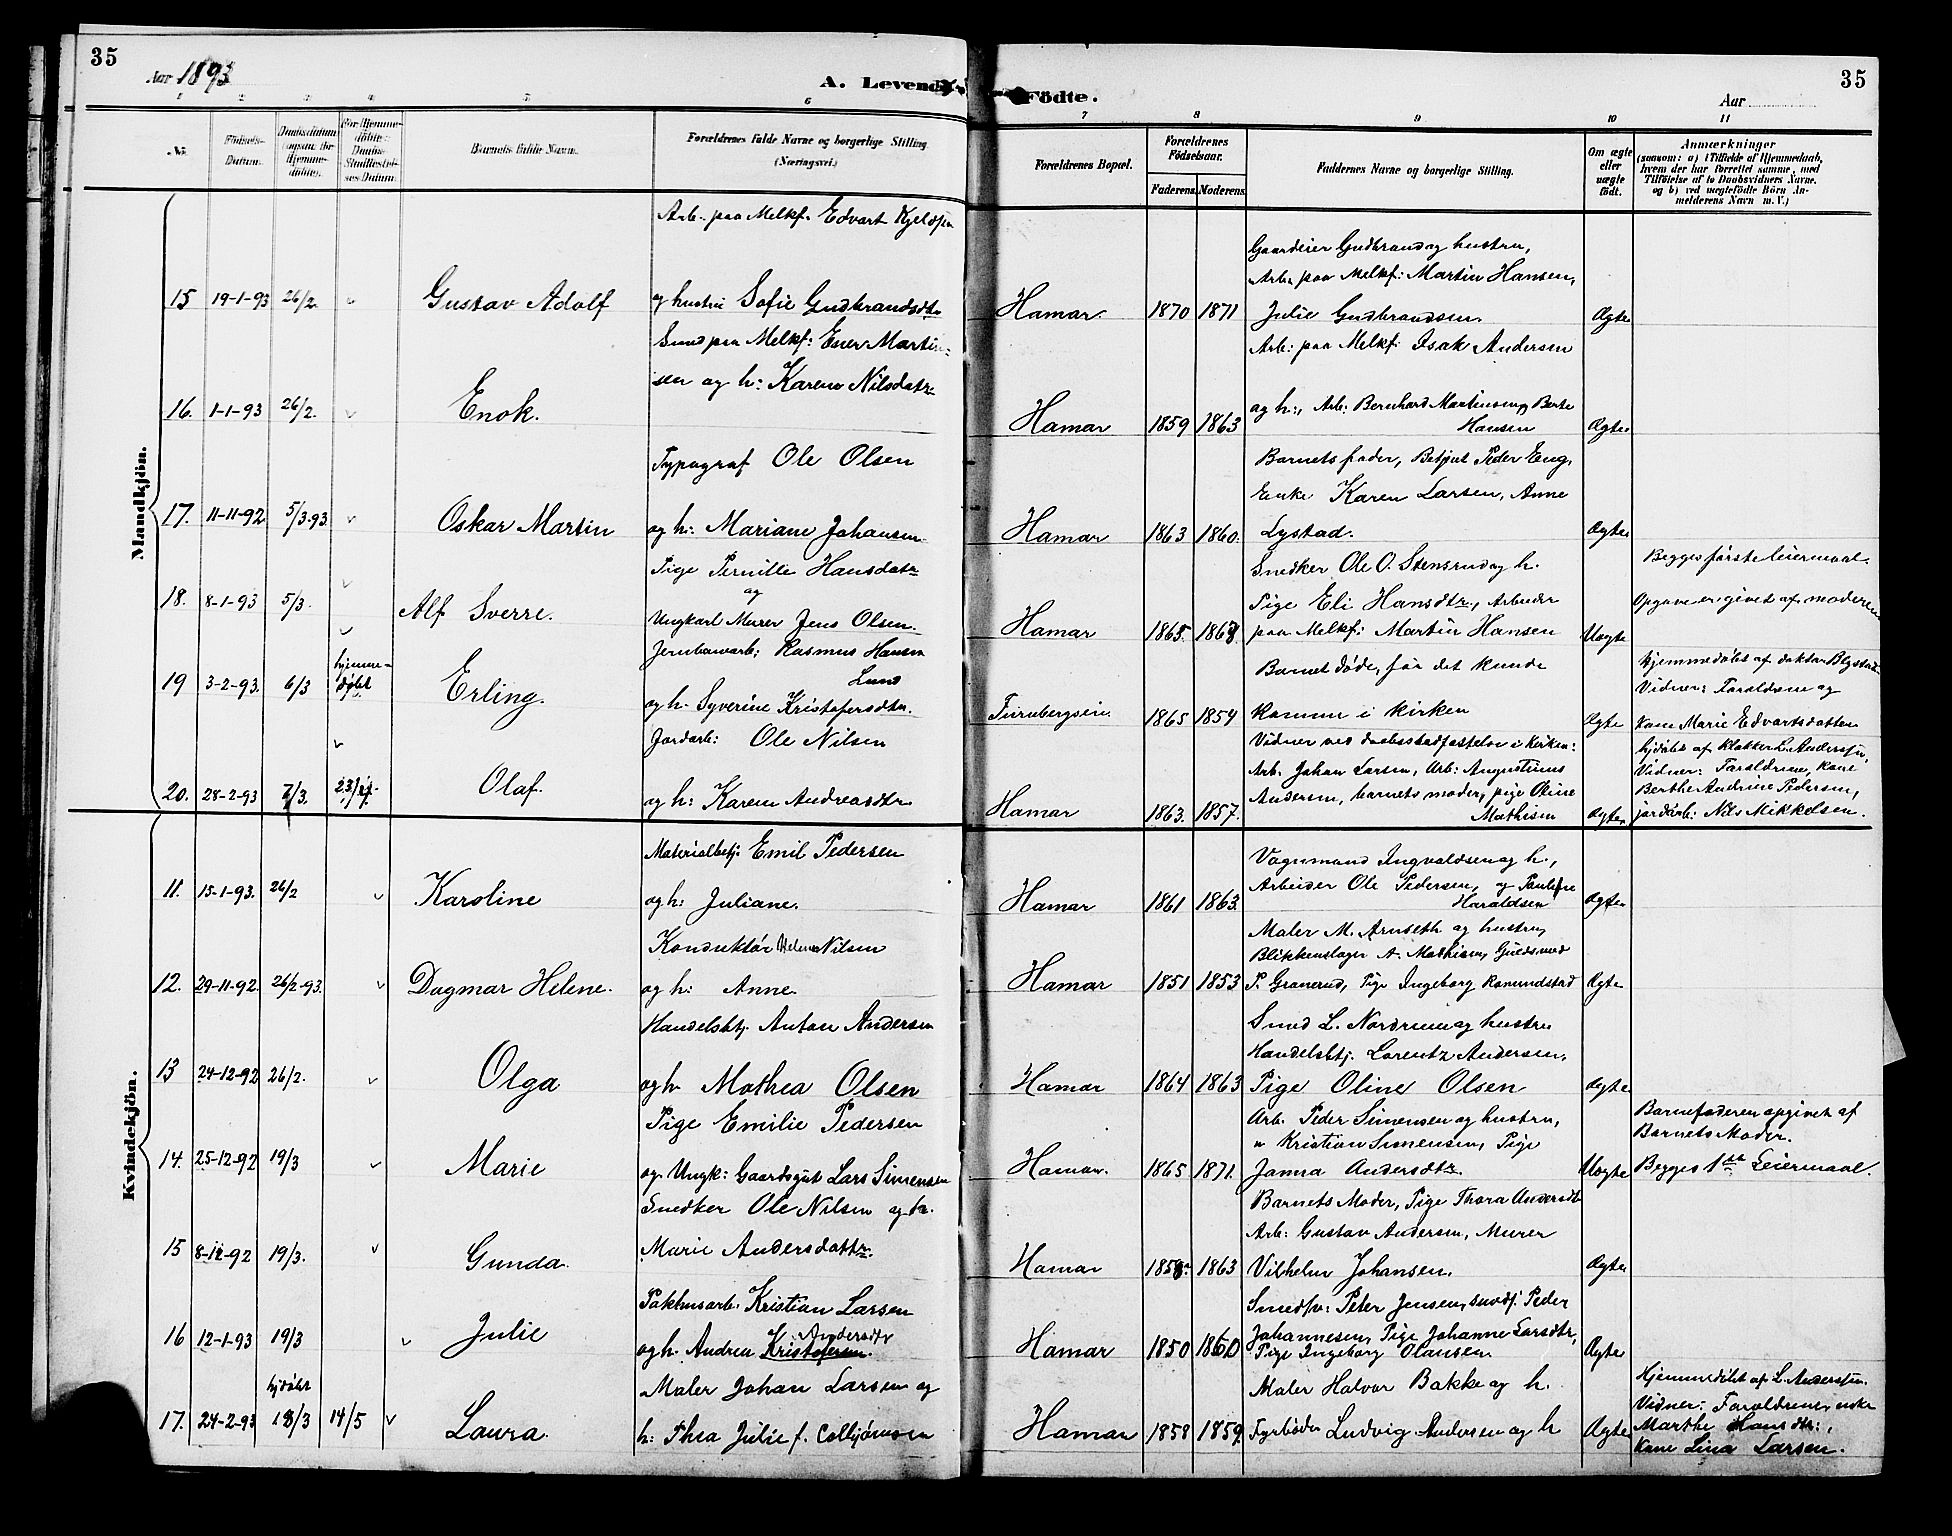 35
Aar 1893
A. Levende
Födte.
Aar
35
1 2 3 4 5 6 7 8 9 10 11
No.
Födsels-Datum.
Daabsdatum (ogsaa for Hjemme-döbte).
For Hjemme-döbte: Daabs-Stadfæstel-ses-Datum.
Barnets fulde Navn.
Forældrenes fulde Navne og borgerlige Stilling
(Næringsvei.)
Forældrenes Bopæl.
Forældrenes Födselsaar.
Faderens. Moderens.
Faddernes Navne og borgerlige Stilling.
Om ægte eller uægte födt.
Anmærkninger
(saasom: a) i Tilfælde af Hjemmedaab,
hvem der har forrettet samme, med
Tilföielse af to Daabsvidners Navne,
og b) ved uægtefödte Börn An-
melderens Navn m. V.)
Mandkjön.
Arb. paa Melkf. Edvart Kjeldsen
Gaardeier Gudbrand og hustru,
Arb. paa Melkf: Martin Hansen,
15 19-1-93 26/2. Gustav Adolf og hustru Sofie Gudbrandsdtr Hamar. 1870 1871 Julie Gudbrandsen. Ægte
Smed paa Melkf: Ener Martin-
Arb: paa Melkf. Isak Andersen
sen og h: Karen Nilsdatr
16. 1-1-93 26/2. Enok. Hamar 1859 1863 og h:, Arb: Bernhard Martinsen, Berte
Hansen Ægte
Typograf Ole Olsen
Barnets fader, Betjent Peder Eng,
Enke Karen Larsen, Anne
17. 11-11-92. 5/3.93. Oskar Martin og h: Mariane Johansen. Hamar 1863 1860. Lystad. Ægte
Pige Pernille Hansdatr
Snedker Ole O. Stensrud og h.
Begges første leiermaal.
og
18. 8-1-93 5/3. Alf Sverre. Ungkarl Murer Jens Olsen. Hamar 1865. 1868. Pige Eli Hansdtr, Arbeider
paa Melkf: Martin Hansen Uægte
Opgave er givet af moderen
Jernbanearb: Rasmus Hansen
Lund
19 3-2-93. 6/3 hjemme-
døbt Erling. og h. Syverine Kristofersdtr. Furubergseie. 1865 1854 Barnet døde, før det kunde
komme i kirken Ægte
Hjemmedøbt af doktor Blystad
Vidner: Forældrene og
Kone Marie Edvartsdatter
Jordarb: Ole Nilsen
20. 28-2-93 7/3. 23/4. Olaf. og h: Karen Andreasdtr Hamar 1863. 1857.
Vidner ved daabsstadfæstelse i Kirken:
Arb. Johan Larsen, Arb: Augustinus
Andersen, barnets moder, pige Oline
Mathisen Ægte
hjdøbt af klokker L. Anderssen,
Vidner: Forældrene, Kone
Berthe Andrine Pedersen,
jordarb: Nils Mikkelsen.
Kvindekjön.
Materialbetj. Emil Pedersen
Vognmand Ingvaldsen og h.,
11. 15-1-93. 26/2 Karoline og h: Juliane. Hamar 1861 1863. Arbeider Ole Pedersen, og Pauline
Haraldsen Ægte
Konduktør Nilsen
Maler M. Arneseth og hustru,
Blikkenslager A. Mathisen, Guldsmed
12. 29-11-92. 26/2-93. Dagmar Helene. og h: Anne. Hamar 1851 1853 P. Granerud, Pige Ingeborg Romundstad Ægte
Handelsbtj. Anton Andersen
Smed L. Nordrum og hustru
Handelsbtj. Lorentz Andersen,
13 24-12-92 26/2. Olga og h. Mathea Olsen Hamar 1864 1863 Pige Oline Olsen Ægte
Pige Emilie Pedersen
Arb. Peder Simensen og hustru,
" Kristian Simensen, Pige
Barnefaderen opgivet af
Barnets Moder.
14. 25-12-92 19/3 Marie og Ungk: Gaardsgut Lars Simensen Hamar. 1865 1871. Janna Andersdtr. Uægte Begges 1ste Leiermaal.
Snedker Ole Nilsen og h.
Barnets Moder, Pige Thora Andersdtr
Arb: Gustav Andersen, Murer
15 8-12-92 19/3. Gunda. Marie Andersdattr. Hamar 1858. 1863 Vilhelm Johansen. Ægte
Pakhusarb. Kristian Larsen
Smedsv: Peter Jensen, Peder
Andersdtr
16 12-1-93 19/3 Julie og h. Andrea Kristofersen. Hamar 1850 1860 Johannesen, Pige Johanne Larsdtr,
Pige Ingeborg Olaussen. Ægte
Maler Johan Larsen og
Maler Halvor Bakke og h.
hjdøbt
17. 24-2-93 18/3 14/5 Laura. h: Thea Julie f. Hamar 1858 1859. Fyrbøder Ludvig Andersen og h Ægte
Hjemmedøbt af L. Anderssen.
Vidner: Forældrene, enke
Marthe Hansdtr:,
Kone Lina Larsen.